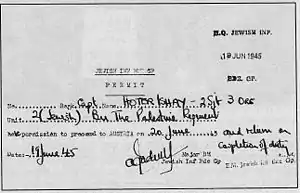 H.Q. JEWISH INF.
19 JUN 1945
JEWISH INF BDE GP
BDE. GP.
PERMIT
No. Rank Capt. Name HOTER-ISHAY - 2 Sjt 3 ORs
Unit 2 (Jewish) Bn The Palestine Regiment
has permission to proceed to AUSTRIA on 20 June 45 and return on
completion of duty
Date: 19 June 45
Major BM
Jewish Inf Bde Gp
B.M. Jewish Inf Bde Gp